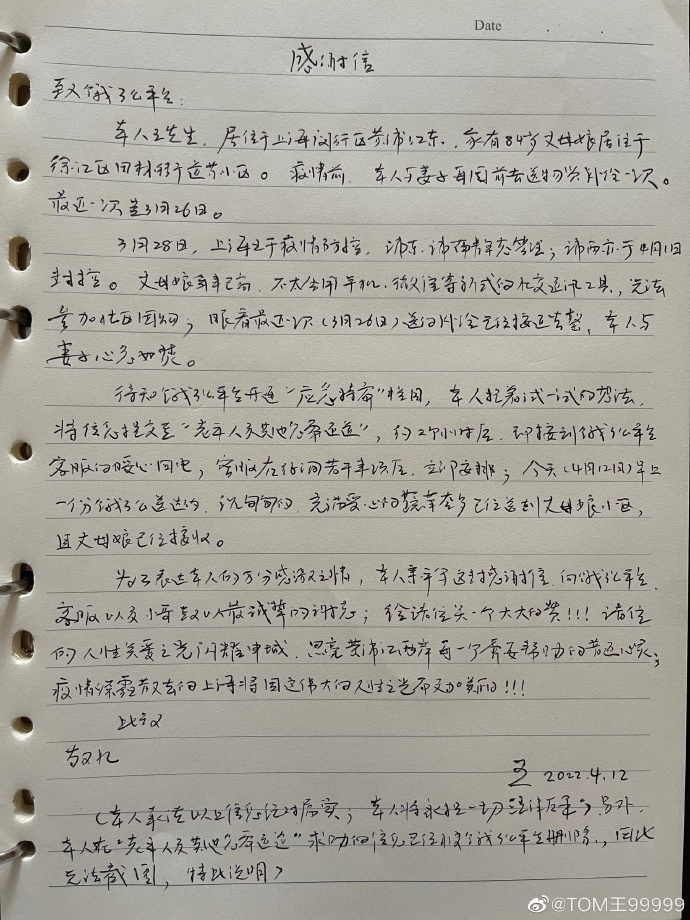 Date
感谢信
致饿了么平台:
本人王先生，居住于上海闵行区浦江东，家有84岁丈母娘居住于
徐汇区田林街道某小区。疫情前，本人与妻子每周前去送物资外给一次。
最近一次是3月26日。
3月28日，上海主于疫情防控，浦东、浦南静态管理；浦西亦于4月1日
封控。丈母娘年事已高，不太会用手机、微信等形式的社交通讯工具，无法
参加社区团购；眼看最近一次（3月26日）送的外给已经接近告罄，本人与
妻子心急如焚。
得知饿了么平台开通“应急特需”栏目，本人抱着试一试的想法，
将信息提交至“老年人及其他急需通道”，约2个小时后，即接到饿了么平台
客服的暖心回电，客服在仔细问若干事项后，立即安排；今天（4月12日）早上
一份饿了么送达的、沉甸甸的、充满爱心的蔬菜套餐已经送到丈母娘小区，
且丈母娘已经接收。
为了表达本人的万分感激之情，本人亲笔写这封感谢信，向饿了么平台、
客服以及小哥致以最诚挚的谢意；给诸位点一个大大的赞!!!诸位
的人性关爱之光闪耀申城，照亮黄浦江两岸每一个需要帮助的普通心灵；
疫情深霾散去的上海将因这伟大的人性之光而更加美丽!!!
此致
敬礼
王 2022.4.12
（本人承诺以上信息绝对属实；本人将承担一切“法律后果”；另外，
本人在“老年人及其他急需通道”求助的信息已经被饿了么平台删除，因此
无法截图，特此说明）
@TOM王99999